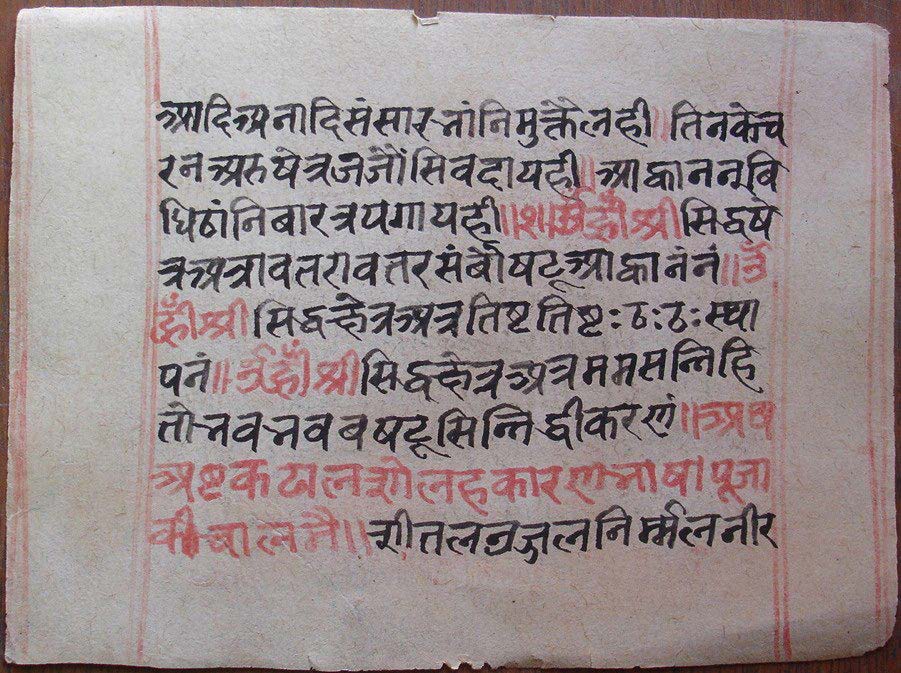 आदिअनादिसंसारभांनिमुक्तैलही॥तिनकेच
रनअरुषेत्रजजौंसिवदायही॥आह्वाननुबि
धिठांनिबारत्रयगायही॥१॥ॐह्रीँश्रीसिद्धषे
त्रअत्रावतरावतरसंबौषट्आह्वाननंनं॥ॐ
ह्रीँश्रीसिद्धक्षेत्रअत्रतिष्टतिष्टःठःठःस्था
पनं॥ॐह्रीँश्रीसिद्धक्षेत्रअत्रममसन्निहि
तोभवभवबषट्सिन्निद्धीकरणं॥अथ
अष्टकढालशोलहकारणभाषापूजा
कीचालमै॥शीतलउज्जलनिर्म्मलनीर